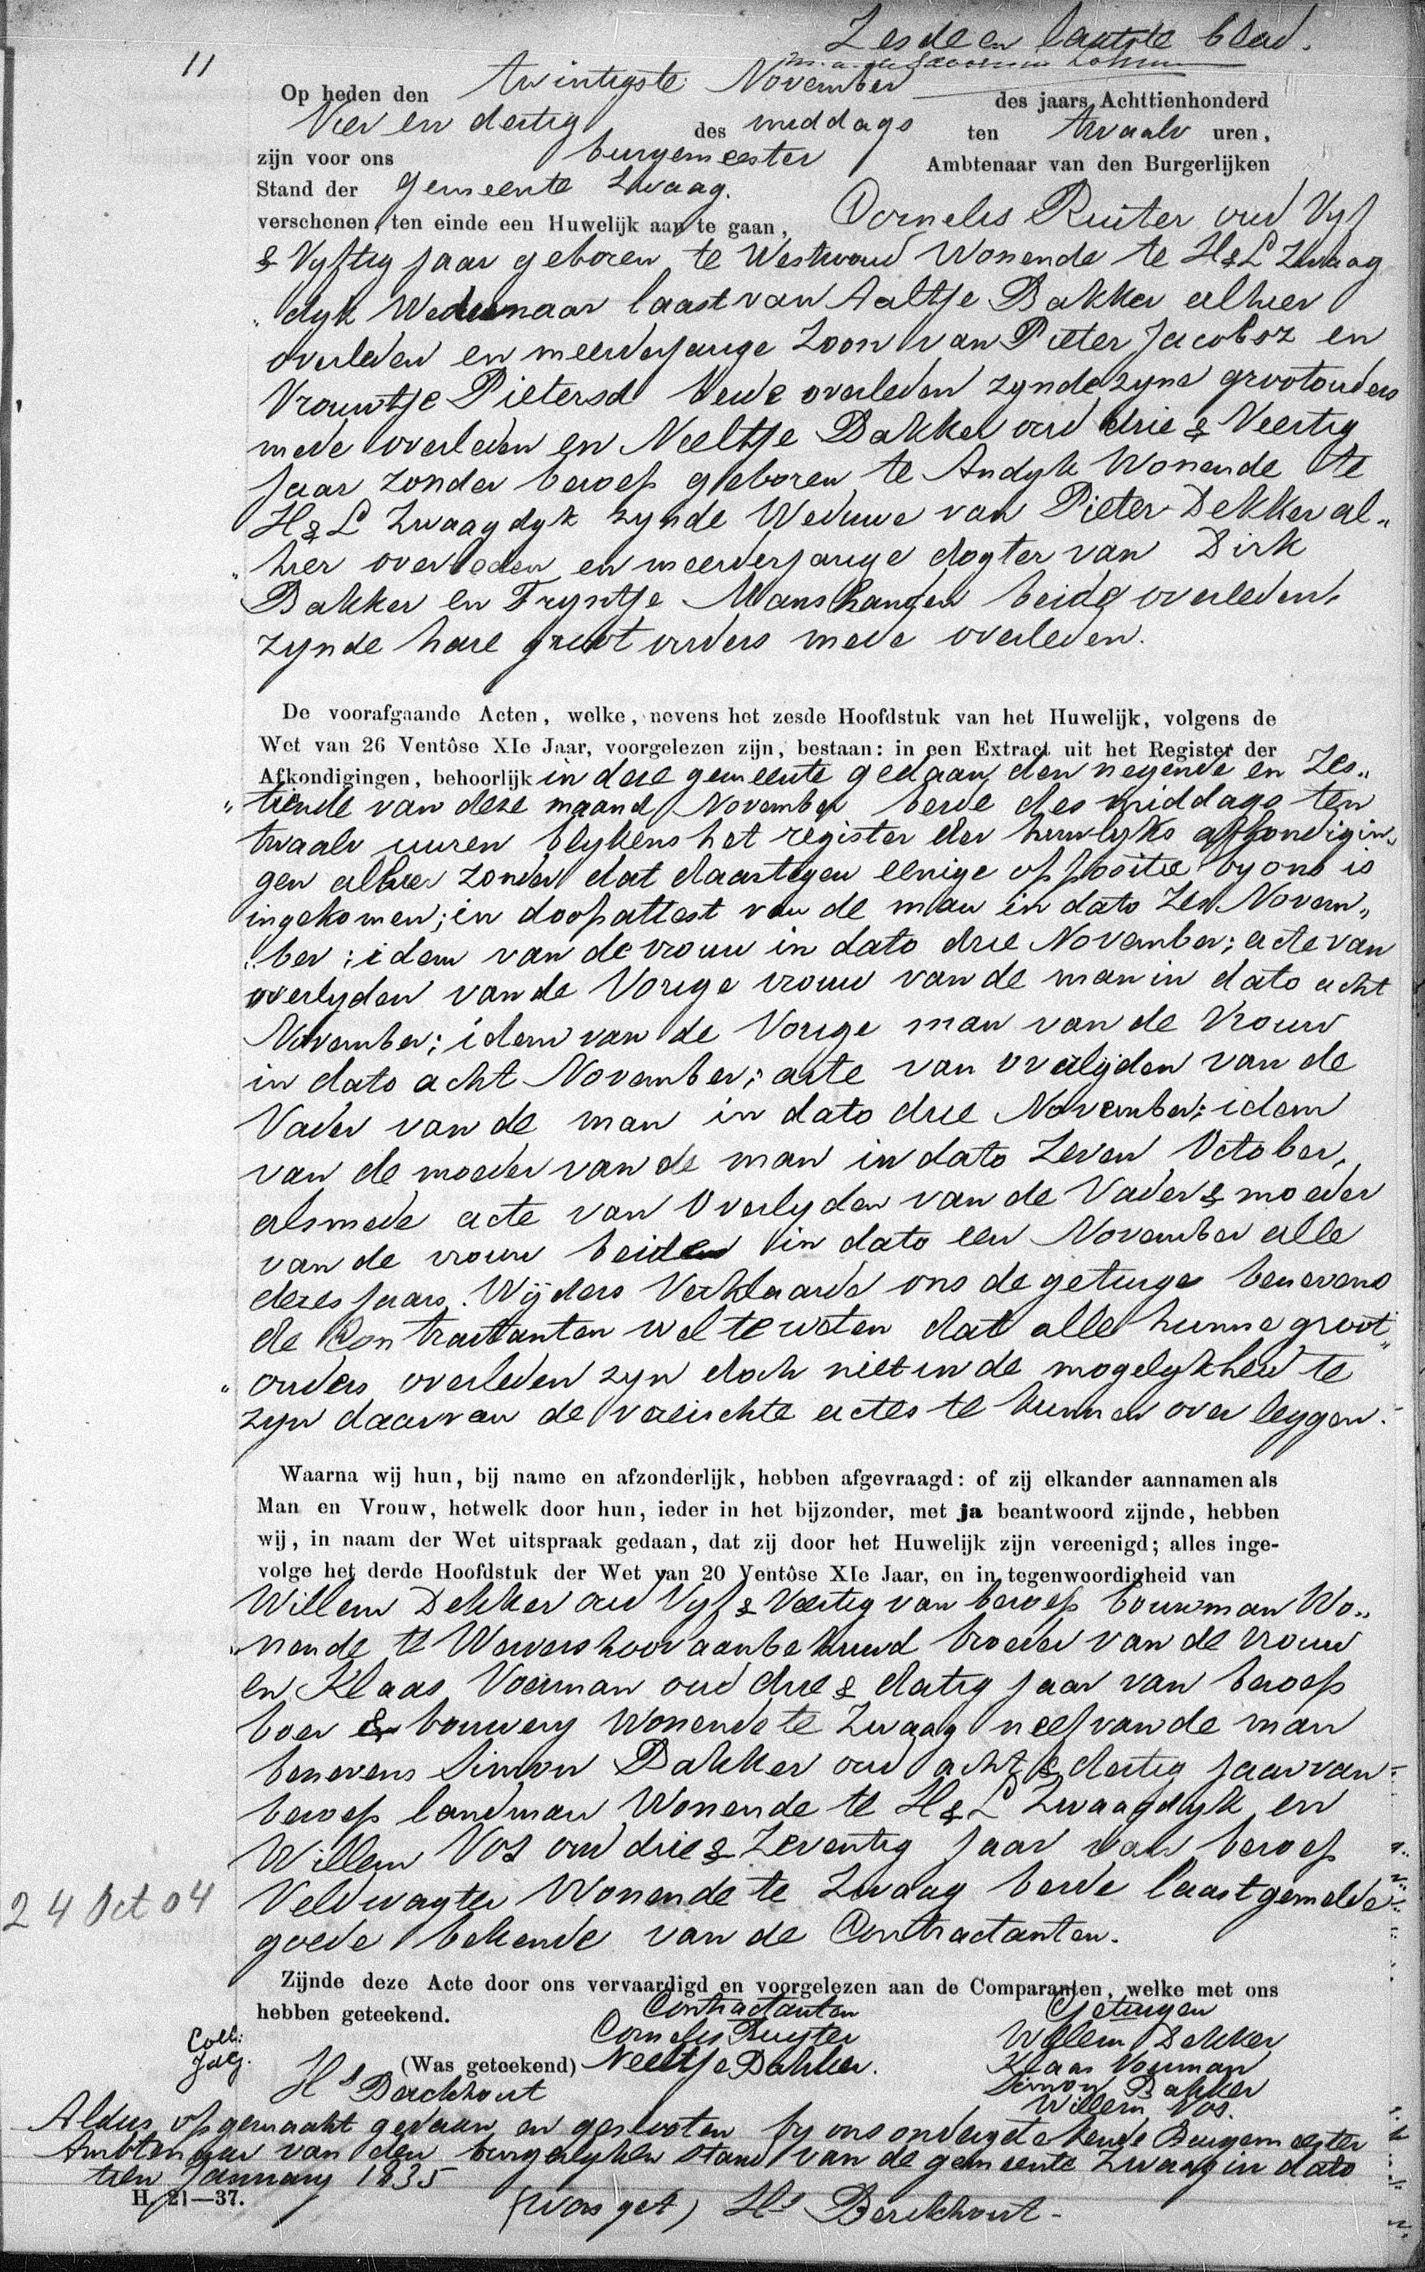 Zesde en laatste blad.
11
Op heden den twintigste November des jaars Achttienhonderd
Vier en dertig des middags ten twaalv uren,
zijn voor ons burgemeester Ambtenaar van den Burgerlijken
Stand der gemeente Zwaag.
verschenen, ten einde een Huwelijk aan te gaan, Cornelis Ruiter oud Vyf
& Vyftig jaar geboren te Westwoud Wonende te H & L Zwaag
„ dyk Wedunaar laast van Aaltje Bakker alhier
overleden en meerderjarige Zoon van Pieter Jacobsz en
Vrouwtje Pietersd beide overleden zynde zyne grootouders
mede overleden en Neeltje Bakker oud drie & Veertig
jaar zonder beroep geboren te Andyk Wonende te
H & L Zwaagdyk zynde Weduwe van Pieter Dekker al„
„ hier overleden en meerderjarige dogter van Dirk
Bakker en Tryntje Manshanden beide overleden,
zynde hare groot ouders mede overleden.
De voorafgaande Acten, welke, nevens het zesde Hoofdstuk van het Huwelijk, volgens de
Wet van 26 Ventôse XIe Jaar, voorgelezen zijn, bestaan: in een Extract uit het Register der
Afkondigingen, behoorlijk in deze gemeente gedaan, den negende en Zes„
„ tiende van deze maand November beide des middags ten
twaalv uuren blykens het register der huwlyks afkondigin„
gen alhier zonder dat daartegen eenige oppositie by ons is
ingekomen; in doopattest van de man in dato Zes Novem„
„ ber; idem van de vrouw in dato drie November; acte van
overlyden van de Vorige vrouw van de man in dato acht
November; idem van de Vorige man van de Vrouw
in dato acht November; acte van overlyden van de
Vader van de man in dato drie November; idem
van de moeder van de man in dato Zeven October,
alsmede acte van Overlyden van de Vader & moeder
van de vrouw beiden in dato een November alle
dezes Jaars. Wijders Verklaarde ons de getuige benevens
de Contractanten wel te weten dat alle hunne groot„
„ ouders overleden zyn doch niet in de mogelykheid te
zyn daarvan de vereischte actes te kunnen over leggen.
Waarna wij hun, bij name en afzonderlijk, hebben afgevraagd: of zij elkander aannamen als
Man en Vrouw, hetwelk door hun, ieder in het bijzonder, met ja beantwoord zijnde, hebben
wij, in naam der Wet uitspraak gedaan, dat zij door het Huwelijk zijn vereenigd; alles inge-
volge het derde Hoofdstuk der Wet van 20 Ventôse XIe Jaar, en in tegenwoordigheid van
Willem Dekker oud Vyf & Veertig van beroep bouwman Wo„
„ nende te Wervershoov aanbehuwd broeder van de vrouw
en Klaas Voerman oud drie & dartig jaar van beroep
boer & bouwery Wonende te Zwaag neef van de man
benevens Simon Bakker oud acht & dertig jaar van
beroep landman Wonende te H & L Zwaagdyk en
Willem Vos oud drie & Zeventig jaar van beroep
Veldwagter Wonende te Zwaag beide laast gemelde
24 Oct 04
goede bekende van de Contractanten.
Zijnde deze Acte door ons vervaardigd en voorgelezen aan de Comparanten, welke met ons
hebben geteekend. Contractanten Getuigen
Coll: Cornelis Ruyter Willem Dekker
(Was geteekend) Neeltje Bakker. Klaas Voerman
Hs Berckhout Simon Bakker
Willem Vos.
Aldus opgemaakt gedaan en gesloten by ons ondergetekende Burgemeester
Ambtenaar van den burgerlyken stand van de gemeente Zwaag in dato
tien January 1835
H. 21—37.
(was get) Hs Berckhout